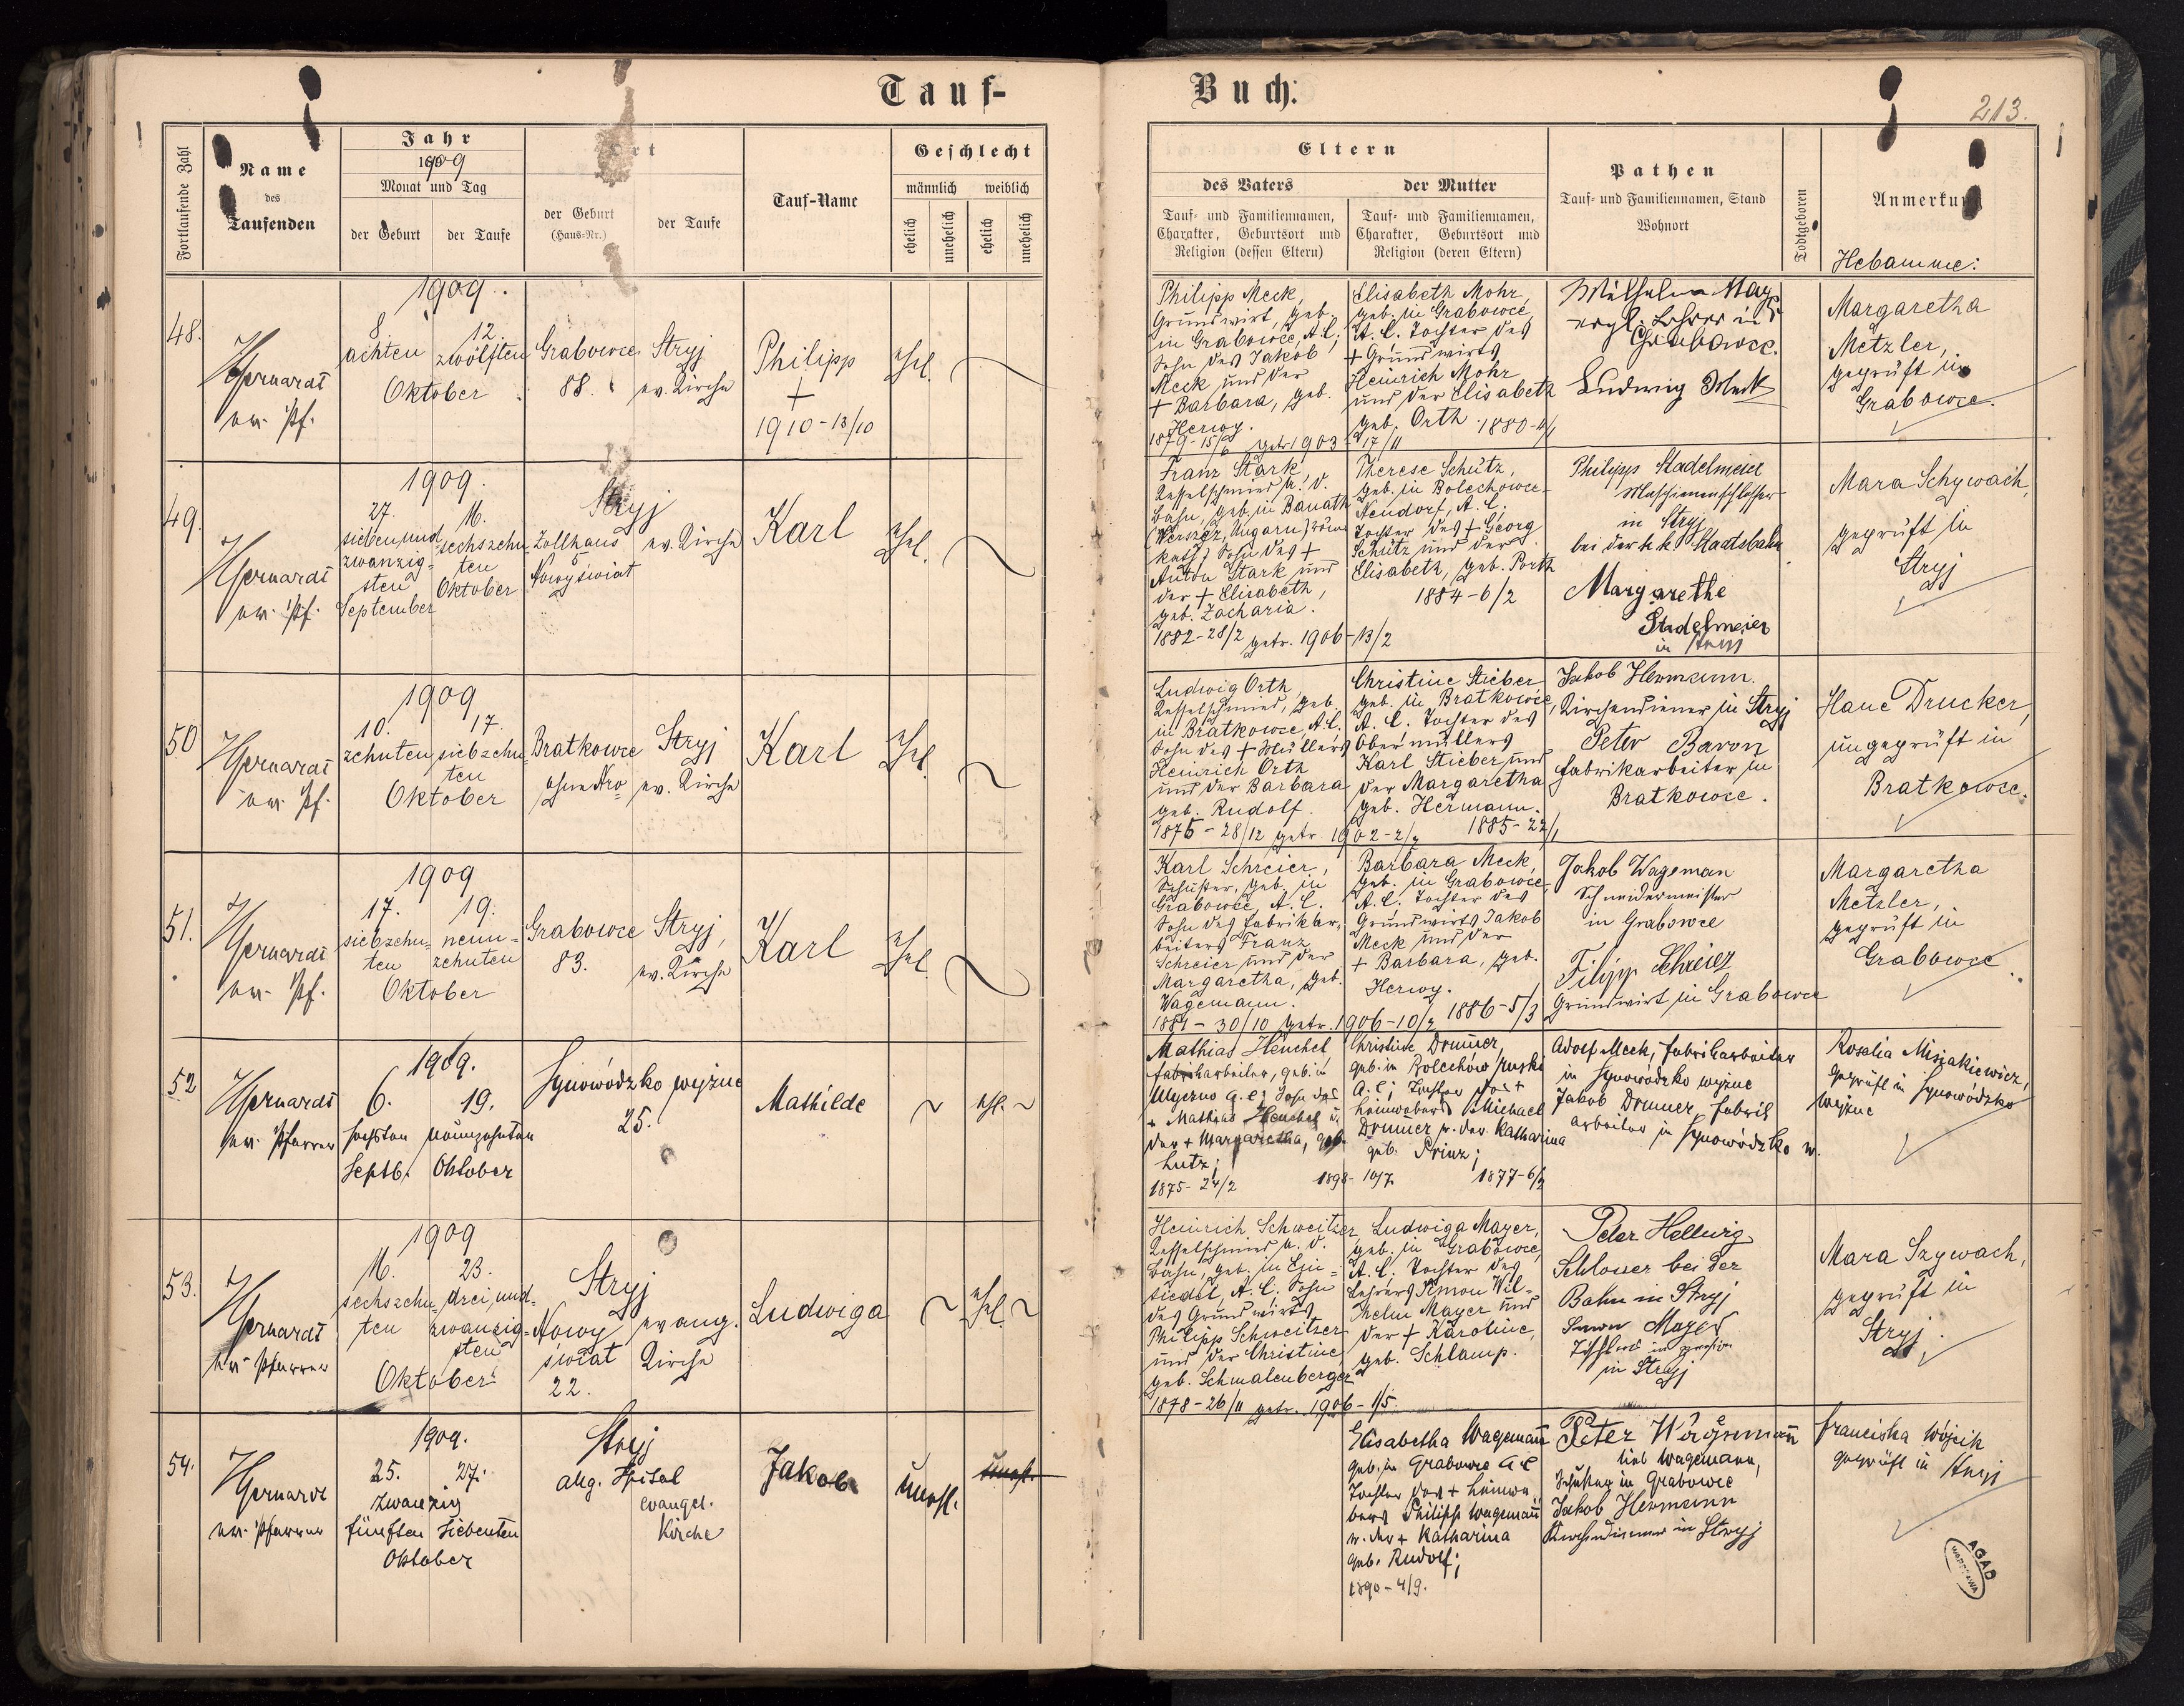 Tauf-
Buch:
213.
Fortlaufende Zahl
Name
des
Taufenden
Jahr
1909
Monat und Tag
der Geburt
der Taufe
Ort
der Geburt
(Haus-Nr.)
der Taufe
Tauf-Name
Geschlecht
männlich
weiblich
ehelich
unehelich
ehelich
unehelich
Eltern
des Vaters
Tauf- und Familiennamen,
Charakter, Geburtsort und
Religion (dessen Eltern)
der Mutter
Tauf- und Familiennamen,
Charakter, Geburtsort und
Religion (deren Eltern)
Pathen
Tauf- und Familiennamen, Stand
Wohnort
Todtgeboren
Anmerkung
Hebamme:
48.
ev. Pf.
1909.
8.
achten
12.
zwölften
Oktober
Grabowce
88.
Stryj
ev. Kirche
Philipp
+
1910-13/10
ehel.
Philipp Meck,
Grundwirt, geb.
in Grabowce, A.C.;
Sohn des Jakob
Meck und der
+ Barbara, geb.
Herwy.
1879-15/6 getr. 1903-17/11
Elisabeth Mohr,
geb. in Grabowce,
A. C. Tochter des
+ Grundwirts
Heinrich Mohr
und der Elisabeth
geb. Orth 1880-4/1
Wilhelm May
evgl. Lehrer in
Grabowce.
Ludwig Meck
Margaretha
Metzler,
geprüft in
Grabowce.
49.
ev. Pf.
1909.
27.
sieben und
zwanzig-
sten
September
16.
sechszehn-
ten
Oktober
Stryj
Zollhaus
Nowy świat
ev. Kirche
Karl
ehel.
Franz Stark,
Kesselschmied a. d.
Bahn, geb. in Banath
(Werszez, Ungarn) röm.
kath; Sohn des +
Anton Stark und
der + Elisabeth,
geb. Zacharia.
1882-28/2 getr. 1906-13/2
Therese Schütz,
geb. in Bolechowce-
Neudorf, A. C.
Tochter des + Georg
Schütz und der
Elisabeth, geb. Porth
1884-6/2
Philipp Stadelmeier
Maschinenschlosser
in Stryj
bei der k.k. Staatsbahn
Margarethe
Stadelmeier
in Stryj
Mara Schywach,
geprüft in
Stryj
50
ev. Pf.
1909
10.
zehnten
17.
siebzehn-
ten
Oktober
Bratkowce
ohne Nro
Stryj
ev. Kirche
Karl
ehel.
Ludwig Orth,
Kesselschmied, geb.
in Bratkowce, A.C.
Sohn des + Müllers
Heinrich Orth
und der Barbara
geb. Rudolf.
1876-28/12 getr. 1902-2/2
Christine Stieber
geb. in Bratkowce,
A. C. Tochter des
Obermüllers
Karl Stieber und
der Margaretha
geb. Hermann.
1885-22/1
Jakob Hermann.
Kirchendiener in Stryj
Peter Baron
Fabrikarbeiter in
Bratkowce.
Hane Drucker,
ungeprüft in
Bratkowce.
51.
ev. Pf.
1909
17.
siebzehn-
ten
19.
neun-
zehnten
Oktober
Grabowce
83.
Stryj,
ev. Kirche
Karl
ehel.
Karl Schreier,
Schuster, geb. in
Grabowce, A. C.
Sohn des Fabrikar-
beiters Franz
Schreier und der
Margaretha, geb.
Wagemann.
1881-30/10 getr. 1906-10/2
Barbara Meck,
geb. in Grabowce,
A. C. Tochter des
Grundwirts Jakob
Meck und der
+ Barbara, geb.
Herwy.
1886-5/3
Jakob Wageman
Schneidermeister
in Grabowce
Filipp Schreier
Grundwirt in Grabowce
Margaretha
Metzler,
geprüft in
Grabowce
52
ev. Pfarrer
1909.
6.
sechsten
Septb.
19.
neunzehnten
Oktober
Synowódzko wyżne
25.
Mathilde
ehel.
Mathias Henchel,
Fabrikarbeiter, geb. in
Ugerno A.C; Sohn des
+ Mathias Henchel u.
der + Margaretha, geb.
Lutz;
1875-24/2
1898-10/7.
Christine Drumer,
geb. in Bolechów ruski
A. C; Tochter des +
Leinwebers Michael
Drumer u. der Katharina
geb. Prinz;
1877-6/2
Adolf Meck, Fabrikarbeiter
in Synowódzko wyżne
Jakob Drumer, Fabrik
arbeiter in Synowódzko w.
Rosalia Misiakiewicz,
geprüft in Synowódzko
wyżne
53.
ev. Pfarrer
1909
16.
sechszehn-
ten
23.
drei und-
zwanzig-
sten
Oktober
Stryj
Nowy
świat
22.
evang.
Kirche
Ludwiga
ehel.
Heinrich Schweitzer,
Kesselschmied a. d.
Bahn, geb. in Ein-
siedel, A. C. Sohn
des Grundwirts
Philipp Schweitzer
und der Christine
geb. Schmalenberger
1878-26/11 getr. 1906-1/5.
Ludwiga Mayer,
geb. in Grabowce,
A. C; Tochter des
Lehrers Simon Wil-
helm Mayer und
der + Karoline,
geb. Schlamp.
Peter Hellwig
Schlosser bei der
Bahn in Stryj
Simon Mayer
in Stryj
Mara Szywach,
geprüft in
Stryj.
54.
ev. Pfarrer
1909.
25.
27.
zwanzig
fünften
siebenten
Oktober
Stryj
allg. Spital
evangel.
Kirche
Jakob
unehl.
unehl.
Elisabetha Wagemann
geb. in Grabowce A C
Tochter des + Leinwe-
bers Philipp Wagemann
u. der + Katharina
geb. Rudolf;
1890-4/9.
Peter Wagemann
Wagemann,
Schuster in Grabowce
Jakob Hermann
Kirchendiener in Stryj
Franciska Wójcik
geprüft in Stryj
AGAD
WARSZAWA